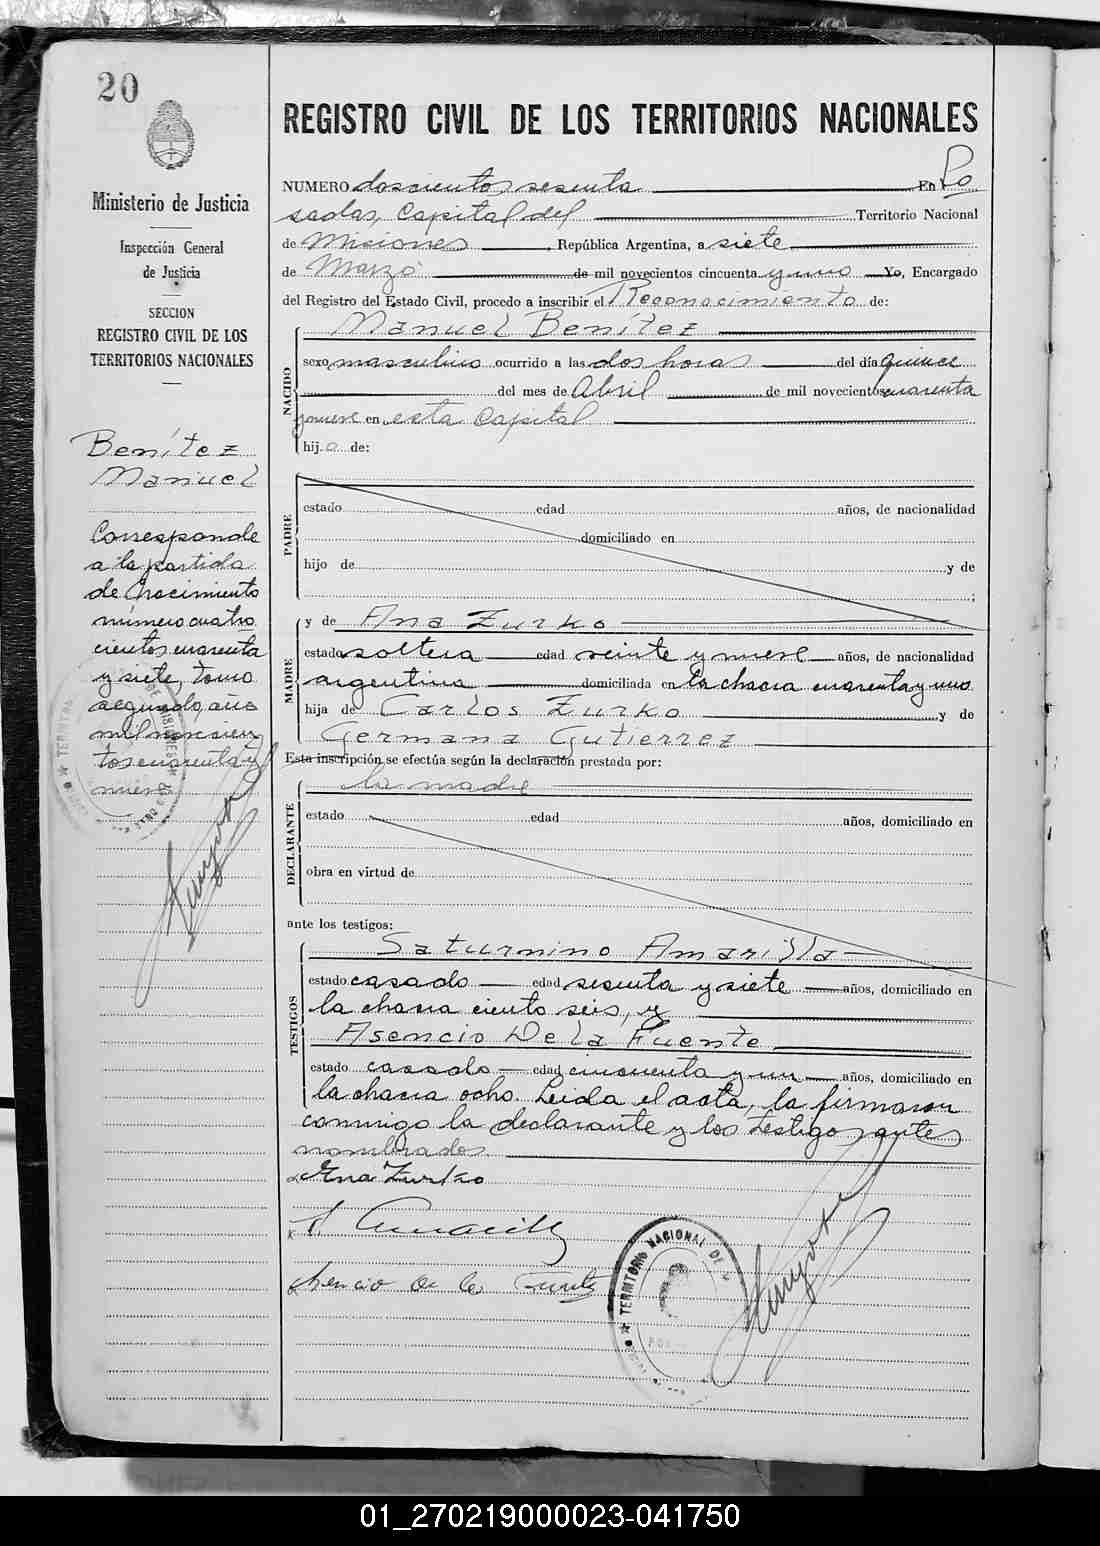 20
Ministerio de Justicia
Inspección General
de Justicia
SECCION
REGISTRO CIVIL DE LOS
TERRITORIOS NACIONALES
Benítez
Manuel
Corresponde
a la partida
de Nacimiento
número cuatro
cientos cuarenta
y siete, tomo
segundo, año
mil novecien
tos cuarenta y
nueve
REGISTRO CIVIL DE LOS TERRITORIOS NACIONALES
NUMERO doscientos sesenta En Po
sadas, Capital del Territorio Nacional
de Misiones, República Argentina, a siete
de Marzo de mil novecientos cincuenta y uno Yo, Encargado
del Registro del Estado Civil, procedo a inscribir el Reconocimiento de:
NACIDO
Manuel Benítez
sexo masculino ocurrido a las dos horas del día quince
del mes de Abril de mil novecientos cuarenta
y nueve en esta Capital
hijo de:
PADRE
estado edad años, de nacionalidad
domiciliado en
hijo de y de
;
MADRE
y de Ana Zurko
estado soltera edad veinte y nueve años, de nacionalidad
argentina domiciliada en la chacra cuarenta y uno
hija de Carlos Zurko y de
Germana Gutierrez
Esta inscripción se efectúa según la declaración prestada por:
DECLARANTE
la madre
estado edad años, domiciliado en
obra en virtud de
ante los testigos:
TESTIGOS
Saturnino Amarilla
estado casado edad sesenta y siete años, domiciliado en
la chacra ciento seis, y
Asencio De la Fuente
estado casado edad cincuenta y un años, domiciliado en
la chacra ocho. Leida el acta, la firmaron
conmigo la declarante y los testigos antes
nombrados.
Ana Zurko
S. Amarilla
Asencio de la Fuente
TERRITORIO NACIONAL DE
01_270219000023-041750